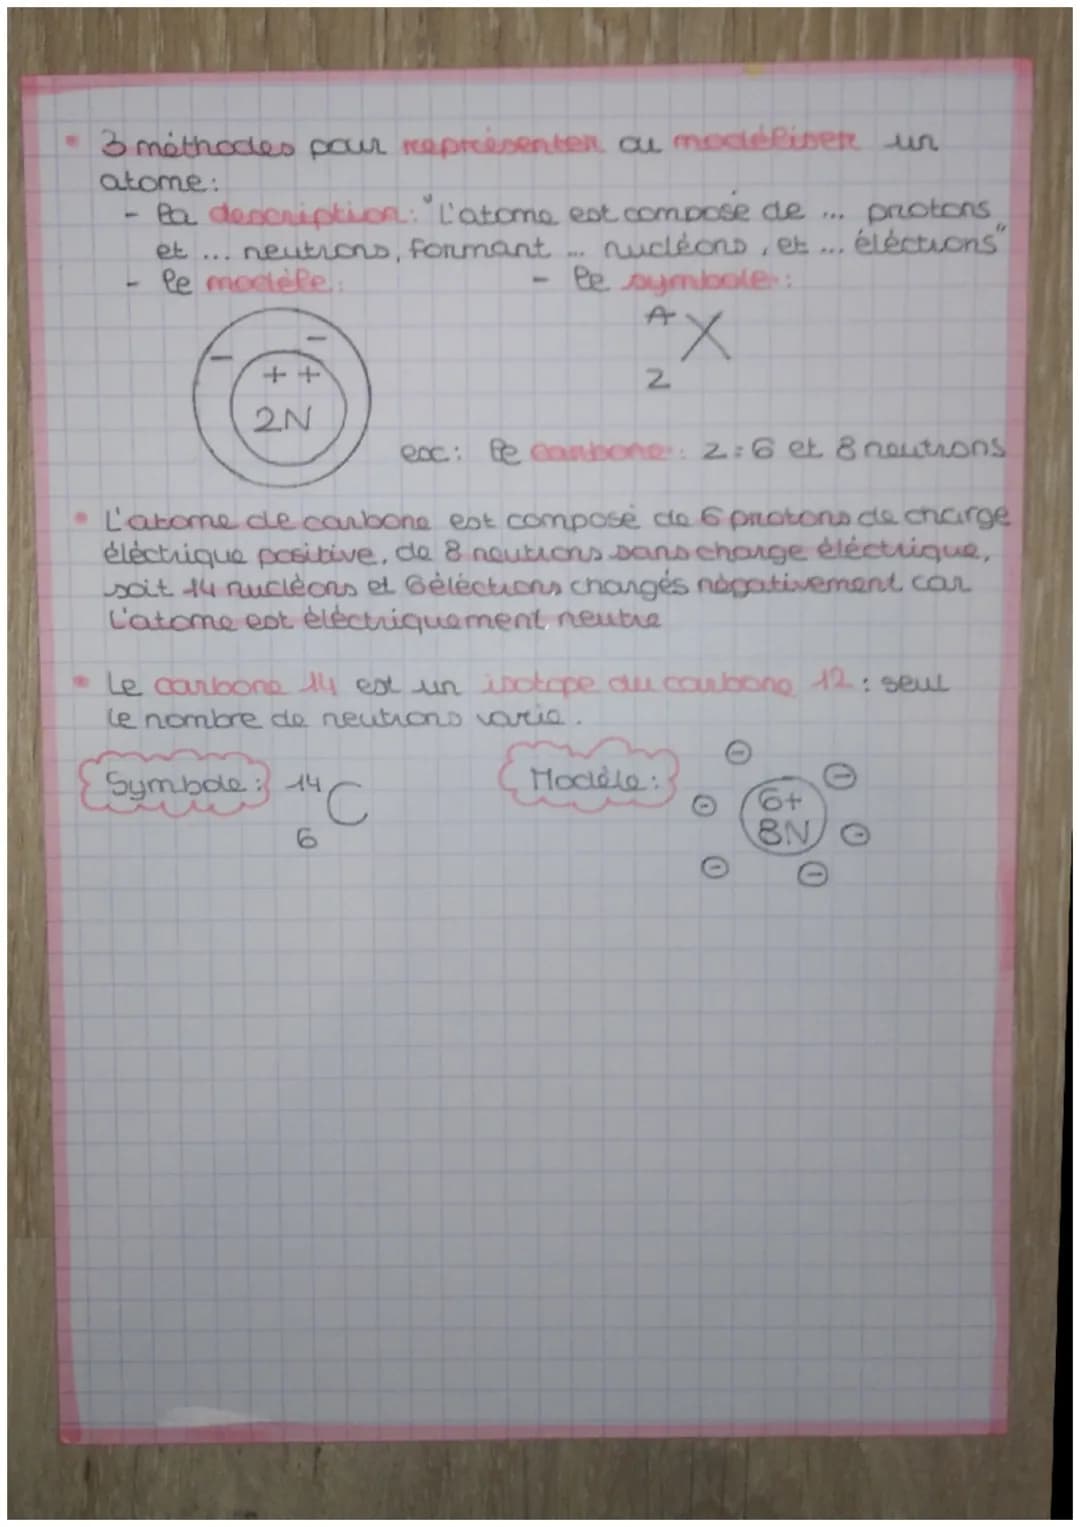 • 3 méthodes pour représenter ou modéliser un
atome:
- la description: "L'atome est composé de ... protons
et ... neutrons, formant ... nucléons, et ... éléctrons"
- le modèle: - le symbole:
A X
Z
- -
+ +
2N
ex: le carbone: Z=6 et 8 neutrons
• L'atome de carbone est composé de 6 protons de charge
éléctrique positive, de 8 neutrons sans charge éléctrique,
soit 14 nucléons et 6 éléctrons chargés négativement car
l'atome est éléctriquement neutre
• Le carbone 14 est un isotope du carbone 12: seul
le nombre de neutrons varie.
Symbole: 14 C
6
Modèle:
6+
8N
- - - - - -